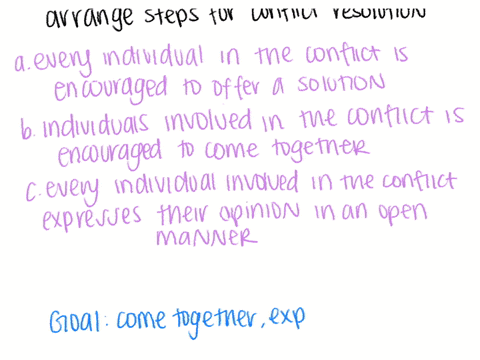 arrange steps for conflict resolution
a. every individual in the conflict is
encouraged to offer a solution
b. individuals involved in the conflict is
encouraged to come together
c. every individual involved in the conflict
expresses their opinion in an open
manner
Goal: come together, exp